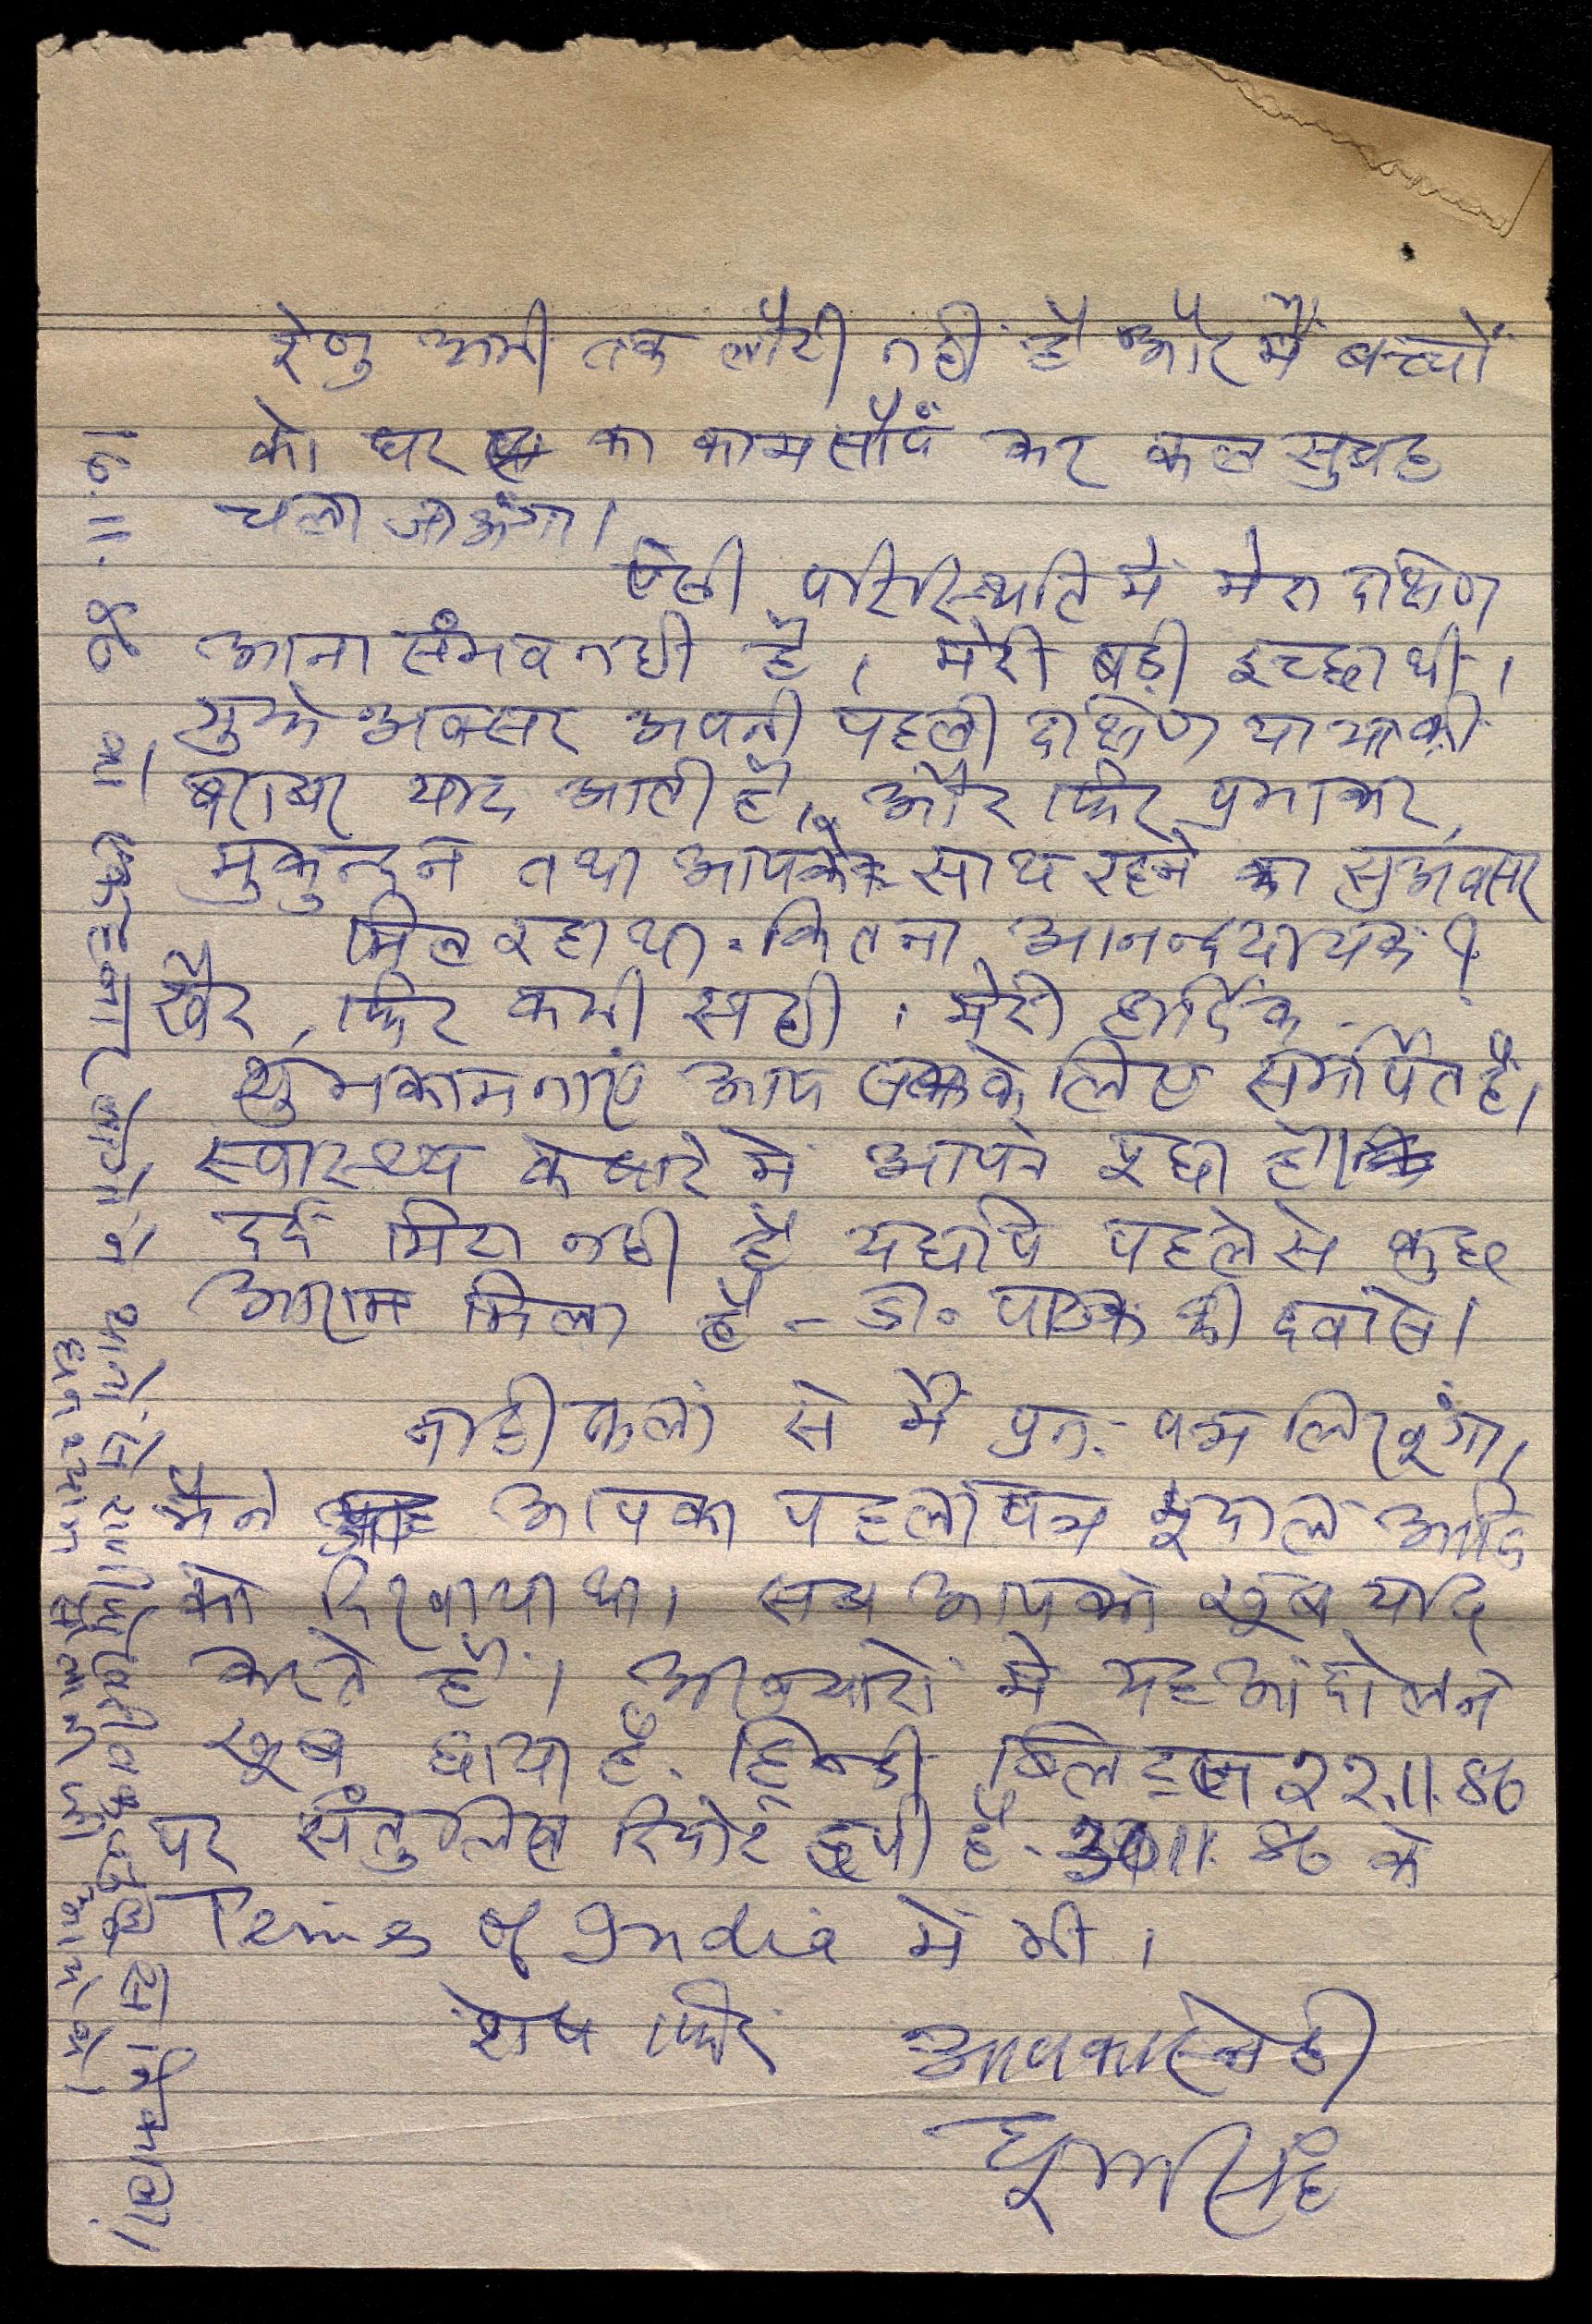 रेणु अभी तक लौटी नहीं है और मैं बच्चों
को घर का काम सौंप कर कल सुबह
चला जाऊंगा।
ऐसी परिस्थिति में मेरा दक्षिण
आना संभव नहीं है। मेरी बड़ी इच्छा थी।
मुझे अक्सर अपनी पहली दक्षिण यात्रा की
बराबर याद आती है। और फिर प्रभाकर,
मुकुन्दन तथा आपके साथ रहने का सुअवसर
मिल रहा था. कितना आनन्ददायक!
खैर, फिर कभी सही। मेरी हार्दिक
शुभकामनाएं आप सबके लिए समर्पित हैं।
स्वास्थ्य के बारे में आपने पूछा है।
दर्द मिटा नहीं है यद्यपि पहले से कुछ
आराम मिला है - डा० पाठक की दवा से।
नाहींकलां से मैं पुनः पत्र लिखूंगा।
मैंने आपका पहला पत्र आदि
को दिखाया था। सब आपको खूब याद
करते हैं। अखबारों में यह आंदोलन
खूब छाया है. हिन्दी ब्लिट्ज 22.11.86
पर संतुलित रिपोर्ट छपी है. 30.11.86 के
Teims of India में भी।
शेष फिर
आपका स्नेही
धूमसिंह
16.11.86 का